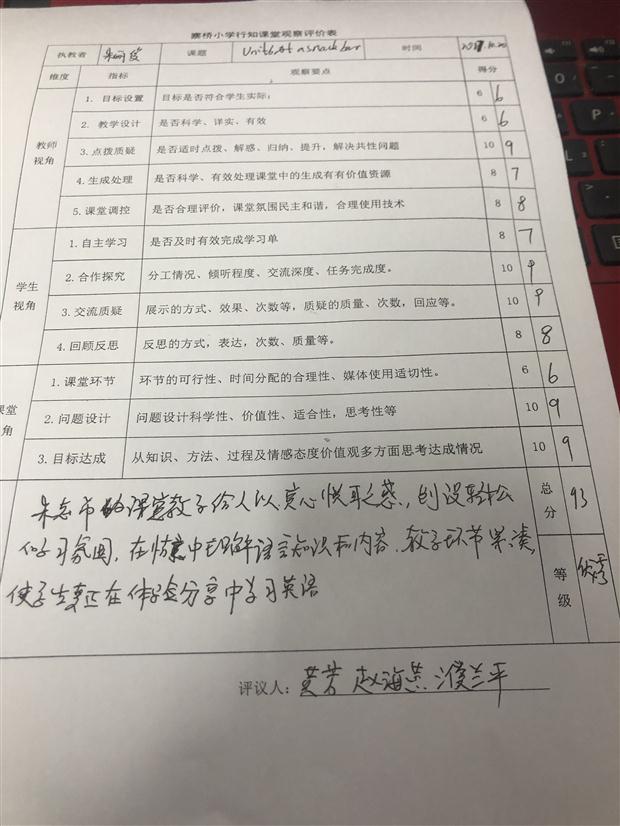 寨桥小学行知课堂观察评价表
执教者 课题 Unit6 At a snack bar 时间 2017.10.20
维度 指标 观察要点 得分
教师视角
1. 目标设置 目标是否符合学生实际; 6 6
2. 教学设计 是否科学、详实、有效 6 6
3.点拨质疑 是否适时点拨、解惑、归纳、提升,解决共性问题 10 9
4.生成处理 是否科学、有效处理课堂中的生成有有价值资源 8 7
5.课堂调控 是否合理评价,课堂氛围民主和谐,合理使用技术 8 8
学生视角
1.自主学习 是否及时有效完成学习单 8 7
2.合作探究 分工情况、倾听程度、交流深度、任务完成度。 10 9
3.交流质疑 展示的方式、效果、次数等,质疑的质量、次数,回应等。 10 9
4.回顾反思 反思的方式,表达,次数、质量等。 8 8
课堂角
1.课堂环节 环节的可行性、时间分配的合理性、媒体使用适切性。 6 6
2.问题设计 问题设计科学性、价值性、适合性,思考性等 10 9
3.目标达成 从知识、方法、过程及情感态度价值观多方面思考达成情况 10 9
朱老师的课堂教学给人以赏心悦耳之感,创设轻松
的学习氛围,在情境中理解语言知识和内容,教学环节紧凑,
使学生真正在体验分享中学习英语
总分 93
等级 优秀
评议人: 黄芳 赵海燕 濮兰平